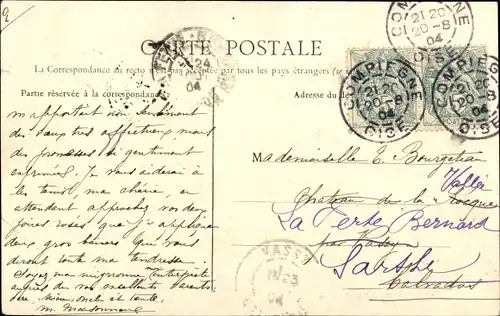 2
CARTE POSTALE
La Correspondance au recto n'est pas acceptée par tous les pays étrangers (se
Partie réservée à la correspondance
Adresse du
COMPIEGNE
21 20
20-8
04
OISE
COMPIEGNE
21 20
20-8
04
OISE
COMPIEGNE
21 20
20-8
04
OISE
24
04
m'apportait non seulement
des vœux très affectueux mais
des promesses si gentiment
exprimées. Je vous aiderai à
les tenir, ma chérie, en
attendant approchez vos deux
joues roses que j'y applique
deux gros baisers qui vous
diront toute ma tendresse.
Soyez ma mignonne l'interprète
auprès de vos excellents parents
père, Mémé et tante.
Mademoiselle E. Bourgeteau
Château de la Vallée
La Ferté Bernard
par Vassy
Sarthe
Calvados
VASSY
23
04